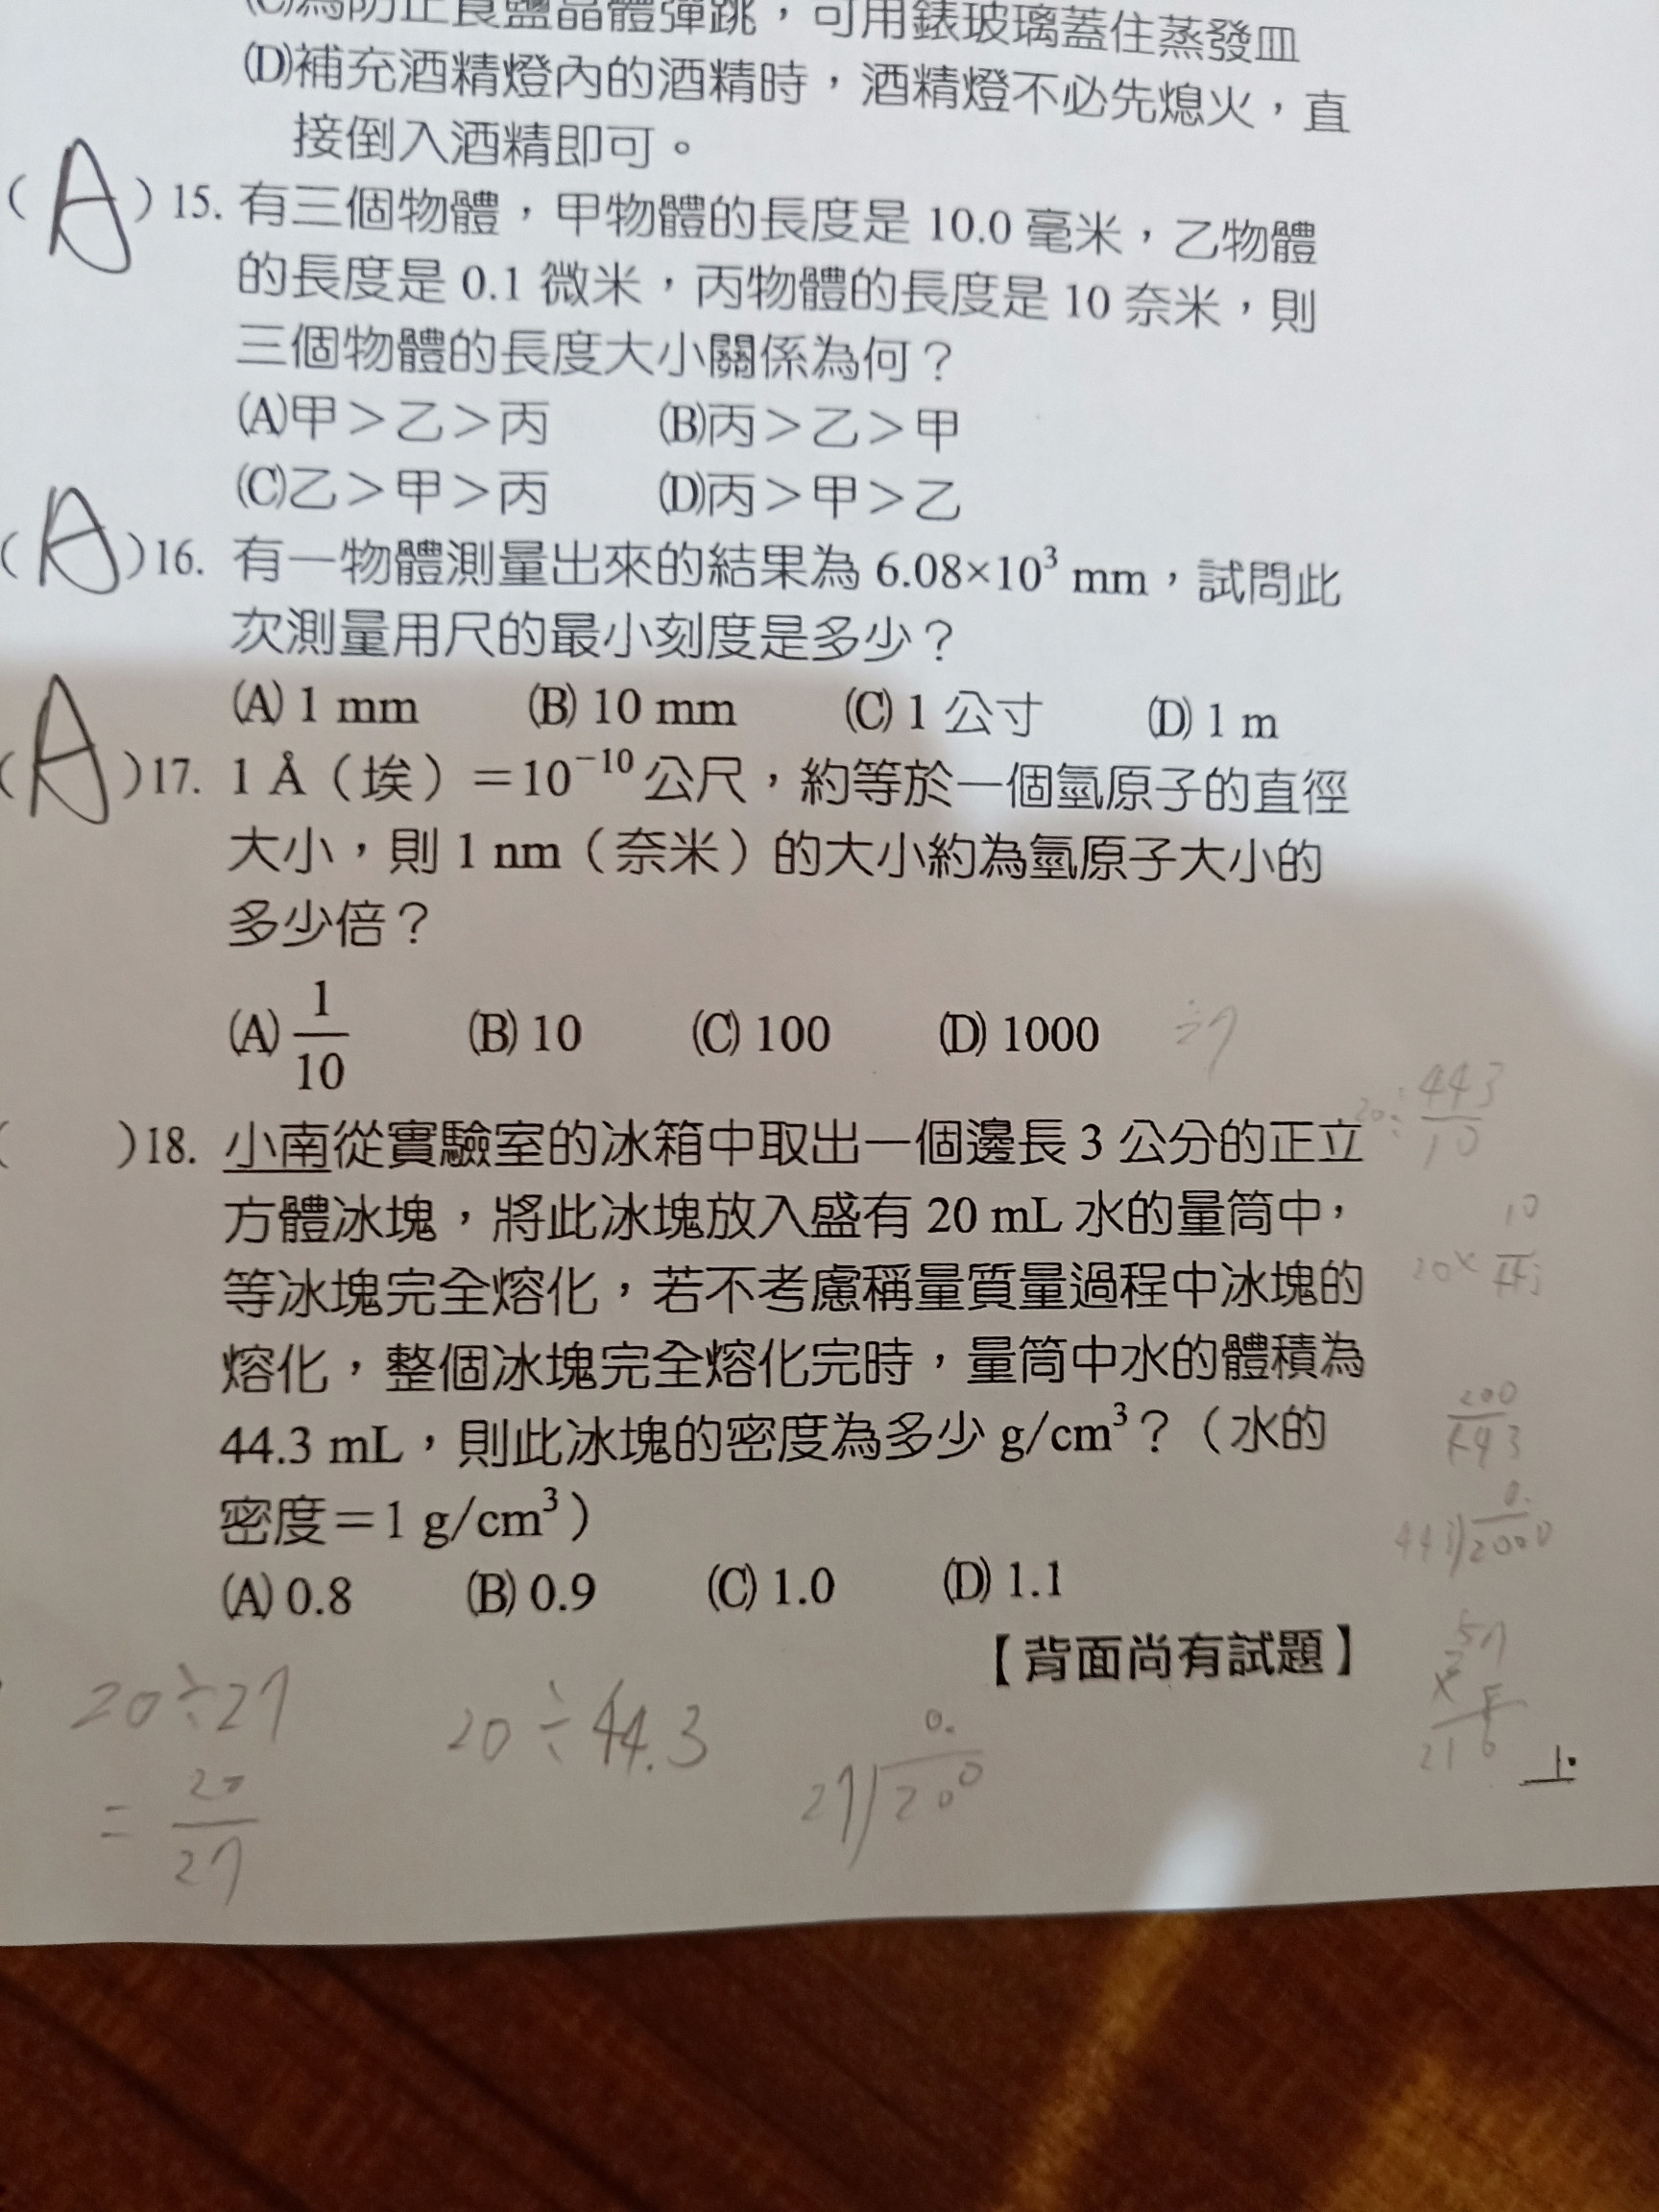 (C)為防止食鹽晶體彈跳，可用錶玻璃蓋住蒸發皿
(D)補充酒精燈內的酒精時，酒精燈不必先熄火，直
接倒入酒精即可。
(A)15. 有三個物體，甲物體的長度是 10.0 毫米，乙物體
的長度是 0.1 微米，丙物體的長度是 10 奈米，則
三個物體的長度大小關係為何？
(A)甲＞乙＞丙 (B)丙＞乙＞甲
(C)乙＞甲＞丙 (D)丙＞甲＞乙
(A)16. 有一物體測量出來的結果為 6.08×10³ mm，試問此
次測量用尺的最小刻度是多少？
(A) 1 mm (B) 10 mm (C) 1 公寸 (D) 1 m
(A)17. 1 Å（埃）＝10⁻¹⁰ 公尺，約等於一個氫原子的直徑
大小，則 1 nm（奈米）的大小約為氫原子大小的
多少倍？
(A) 1/10 (B) 10 (C) 100 (D) 1000
÷7
20÷ 443/10
( )18. 小南從實驗室的冰箱中取出一個邊長 3 公分的正立
方體冰塊，將此冰塊放入盛有 20 mL 水的量筒中，
等冰塊完全熔化，若不考慮稱量質量過程中冰塊的
熔化，整個冰塊完全熔化完時，量筒中水的體積為
44.3 mL，則此冰塊的密度為多少 g/cm³？（水的
密度＝1 g/cm³）
(A) 0.8 (B) 0.9 (C) 1.0 (D) 1.1
【背面尚有試題】
20÷27
= 20/27
20÷44.3
0.
27)200
200
443
0.
443)2000
216